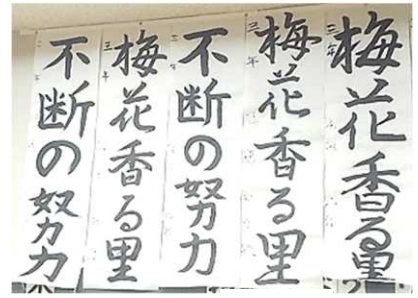 梅花香る里
三年
梅花香る里
三年
不断の努力
梅花香る里
三年
不断の努力